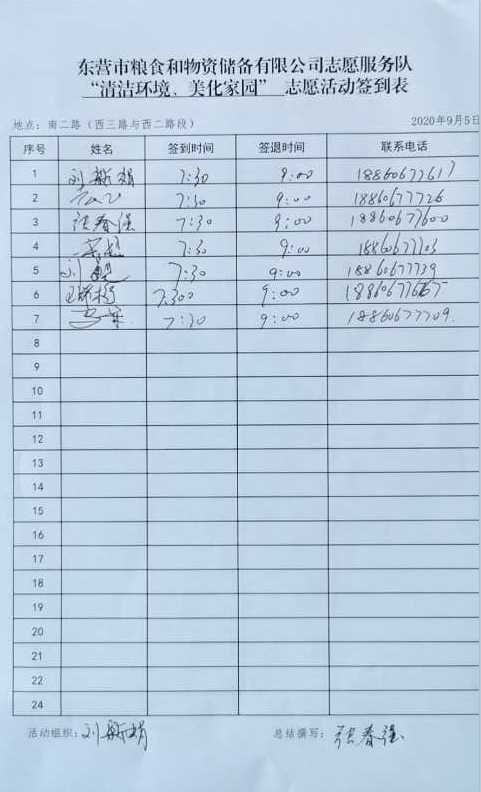 东营市粮食和物资储备有限公司志愿服务队
“清洁环境、美化家园” 志愿活动签到表
地点：南二路（西三路与西二路段） 2020年9月5日
序号 姓名 签到时间 签退时间 联系电话
1 刘 娟 7:30 9:00 18860677617
2 7:30 9:00 18860677726
3 张春强 7:30 9:00 18860677600
4 7:30 9:00 18860677703
5 刘 7:30 9:00 18860677739
6 7:300 9:00
7 7:30 9:00 18860677709.
8
9
10
11
12
13
14
15
16
17
18
19
20
21
22
23
24
活动组织: 刘 娟 总结撰写: 张春强